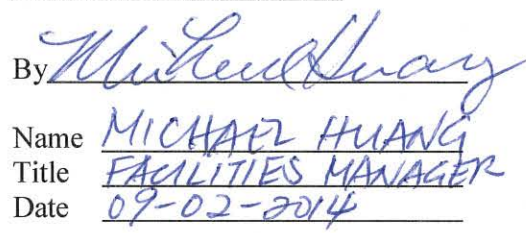 By Michael Huang
Name MICHAEL HUANG
Title FACILITIES MANAGER
Date 09-02-2014